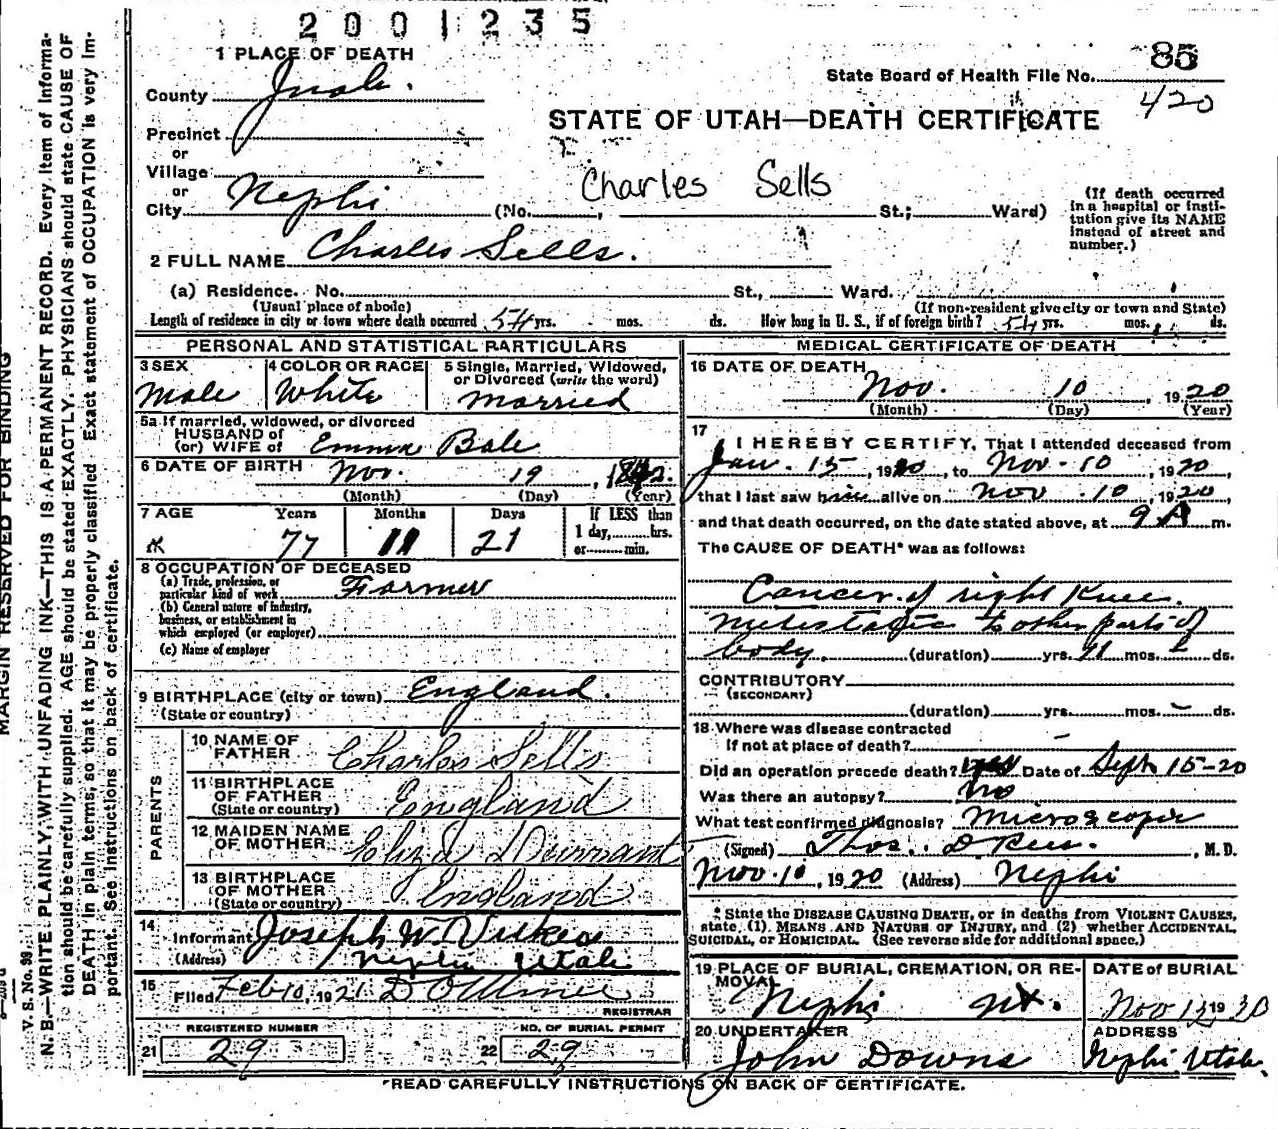 2001235
1 PLACE OF DEATH
85
State Board of Health File No.
420
County Juab.
STATE OF UTAH—DEATH CERTIFICATE
Precinct
or
Village
or
Charles Sells
City Nephi (No. , St.; Ward)
(If death occurred in a hospital or institution give its NAME instead of street and number.)
2 FULL NAME Charles Sells.
(a) Residence. No. St., Ward.
(Usual place of abode) (If non-resident give city or town and State)
Length of residence in city or town where death occurred 54 yrs. mos. ds. How long in U. S., if of foreign birth? 54 yrs. mos. ds.
PERSONAL AND STATISTICAL PARTICULARS
3 SEX Male
4 COLOR OR RACE White
5 Single, Married, Widowed, or Divorced (write the word) Married
5a If married, widowed, or divorced
HUSBAND of
(or) WIFE of Emma Bale
6 DATE OF BIRTH Nov. 19, 1842.
(Month) (Day) (Year)
7 AGE Years Months Days If LESS than
77 11 21 1 day, hrs.
or min.
8 OCCUPATION OF DECEASED
(a) Trade, profession, or
particular kind of work Farmer
(b) General nature of industry,
business, or establishment in
which employed (or employer)
(c) Name of employer
9 BIRTHPLACE (city or town) England.
(State or country)
PARENTS
10 NAME OF FATHER Charles Sells
11 BIRTHPLACE OF FATHER England
(State or country)
12 MAIDEN NAME OF MOTHER Eliza Durrant
13 BIRTHPLACE OF MOTHER England
(State or country)
14 Informant Joseph W.
(Address) Nephi Utah
15 Filed Feb 10, 1921
REGISTRAR
REGISTERED NUMBER NO. OF BURIAL PERMIT
21 29 22 29
MEDICAL CERTIFICATE OF DEATH
16 DATE OF DEATH
Nov. 10, 1920
(Month) (Day) (Year)
17 I HEREBY CERTIFY, That I attended deceased from
Jan. 15, 1920, to Nov. 10, 1920
that I last saw him alive on Nov. 10, 1920
and that death occurred, on the date stated above, at 9 A m.
The CAUSE OF DEATH* was as follows:
Cancer of right Knee.
Metastasis to other parts of
body. (duration) yrs. 11 mos. ds.
CONTRIBUTORY
(SECONDARY)
(duration) yrs. mos. ds.
18 Where was disease contracted
If not at place of death?
Did an operation precede death? yes Date of Sept 15-20
Was there an autopsy? No
What test confirmed diagnosis? Microscopic
(Signed) Thos. D. Rees. , M. D.
Nov. 10, 1920 (Address) Nephi
* State the DISEASE CAUSING DEATH, or in deaths from VIOLENT CAUSES,
state (1) MEANS AND NATURE OF INJURY, and (2) whether ACCIDENTAL,
SUICIDAL, or HOMICIDAL. (See reverse side for additional space.)
19 PLACE OF BURIAL, CREMATION, OR REMOVAL
Nephi Ut.
DATE of BURIAL
Nov 1920
20 UNDERTAKER
John Downs
ADDRESS
Nephi Utah.
*READ CAREFULLY INSTRUCTIONS ON BACK OF CERTIFICATE.
MARGIN RESERVED FOR BINDING
V. S. No. 99
N. B.—WRITE PLAINLY, WITH UNFADING INK—THIS IS A PERMANENT RECORD. Every item of information
should be carefully supplied. AGE should be stated EXACTLY. PHYSICIANS should state CAUSE OF
DEATH in plain terms, so that it may be properly classified. Exact statement of OCCUPATION is very important.
See instructions on back of certificate.